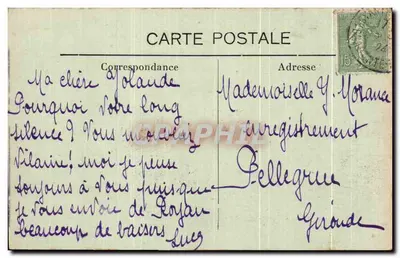 CARTE POSTALE
Correspondance
Ma chère Yolande
Pourquoi votre long
silence? Vous
vilaine! moi je pense
toujours à vous puisque
je vous envoie de Royan
beaucoup de baisers
Lucy
Adresse
Mademoiselle Y. Morance
enregistrement
Pellegrue
Gironde